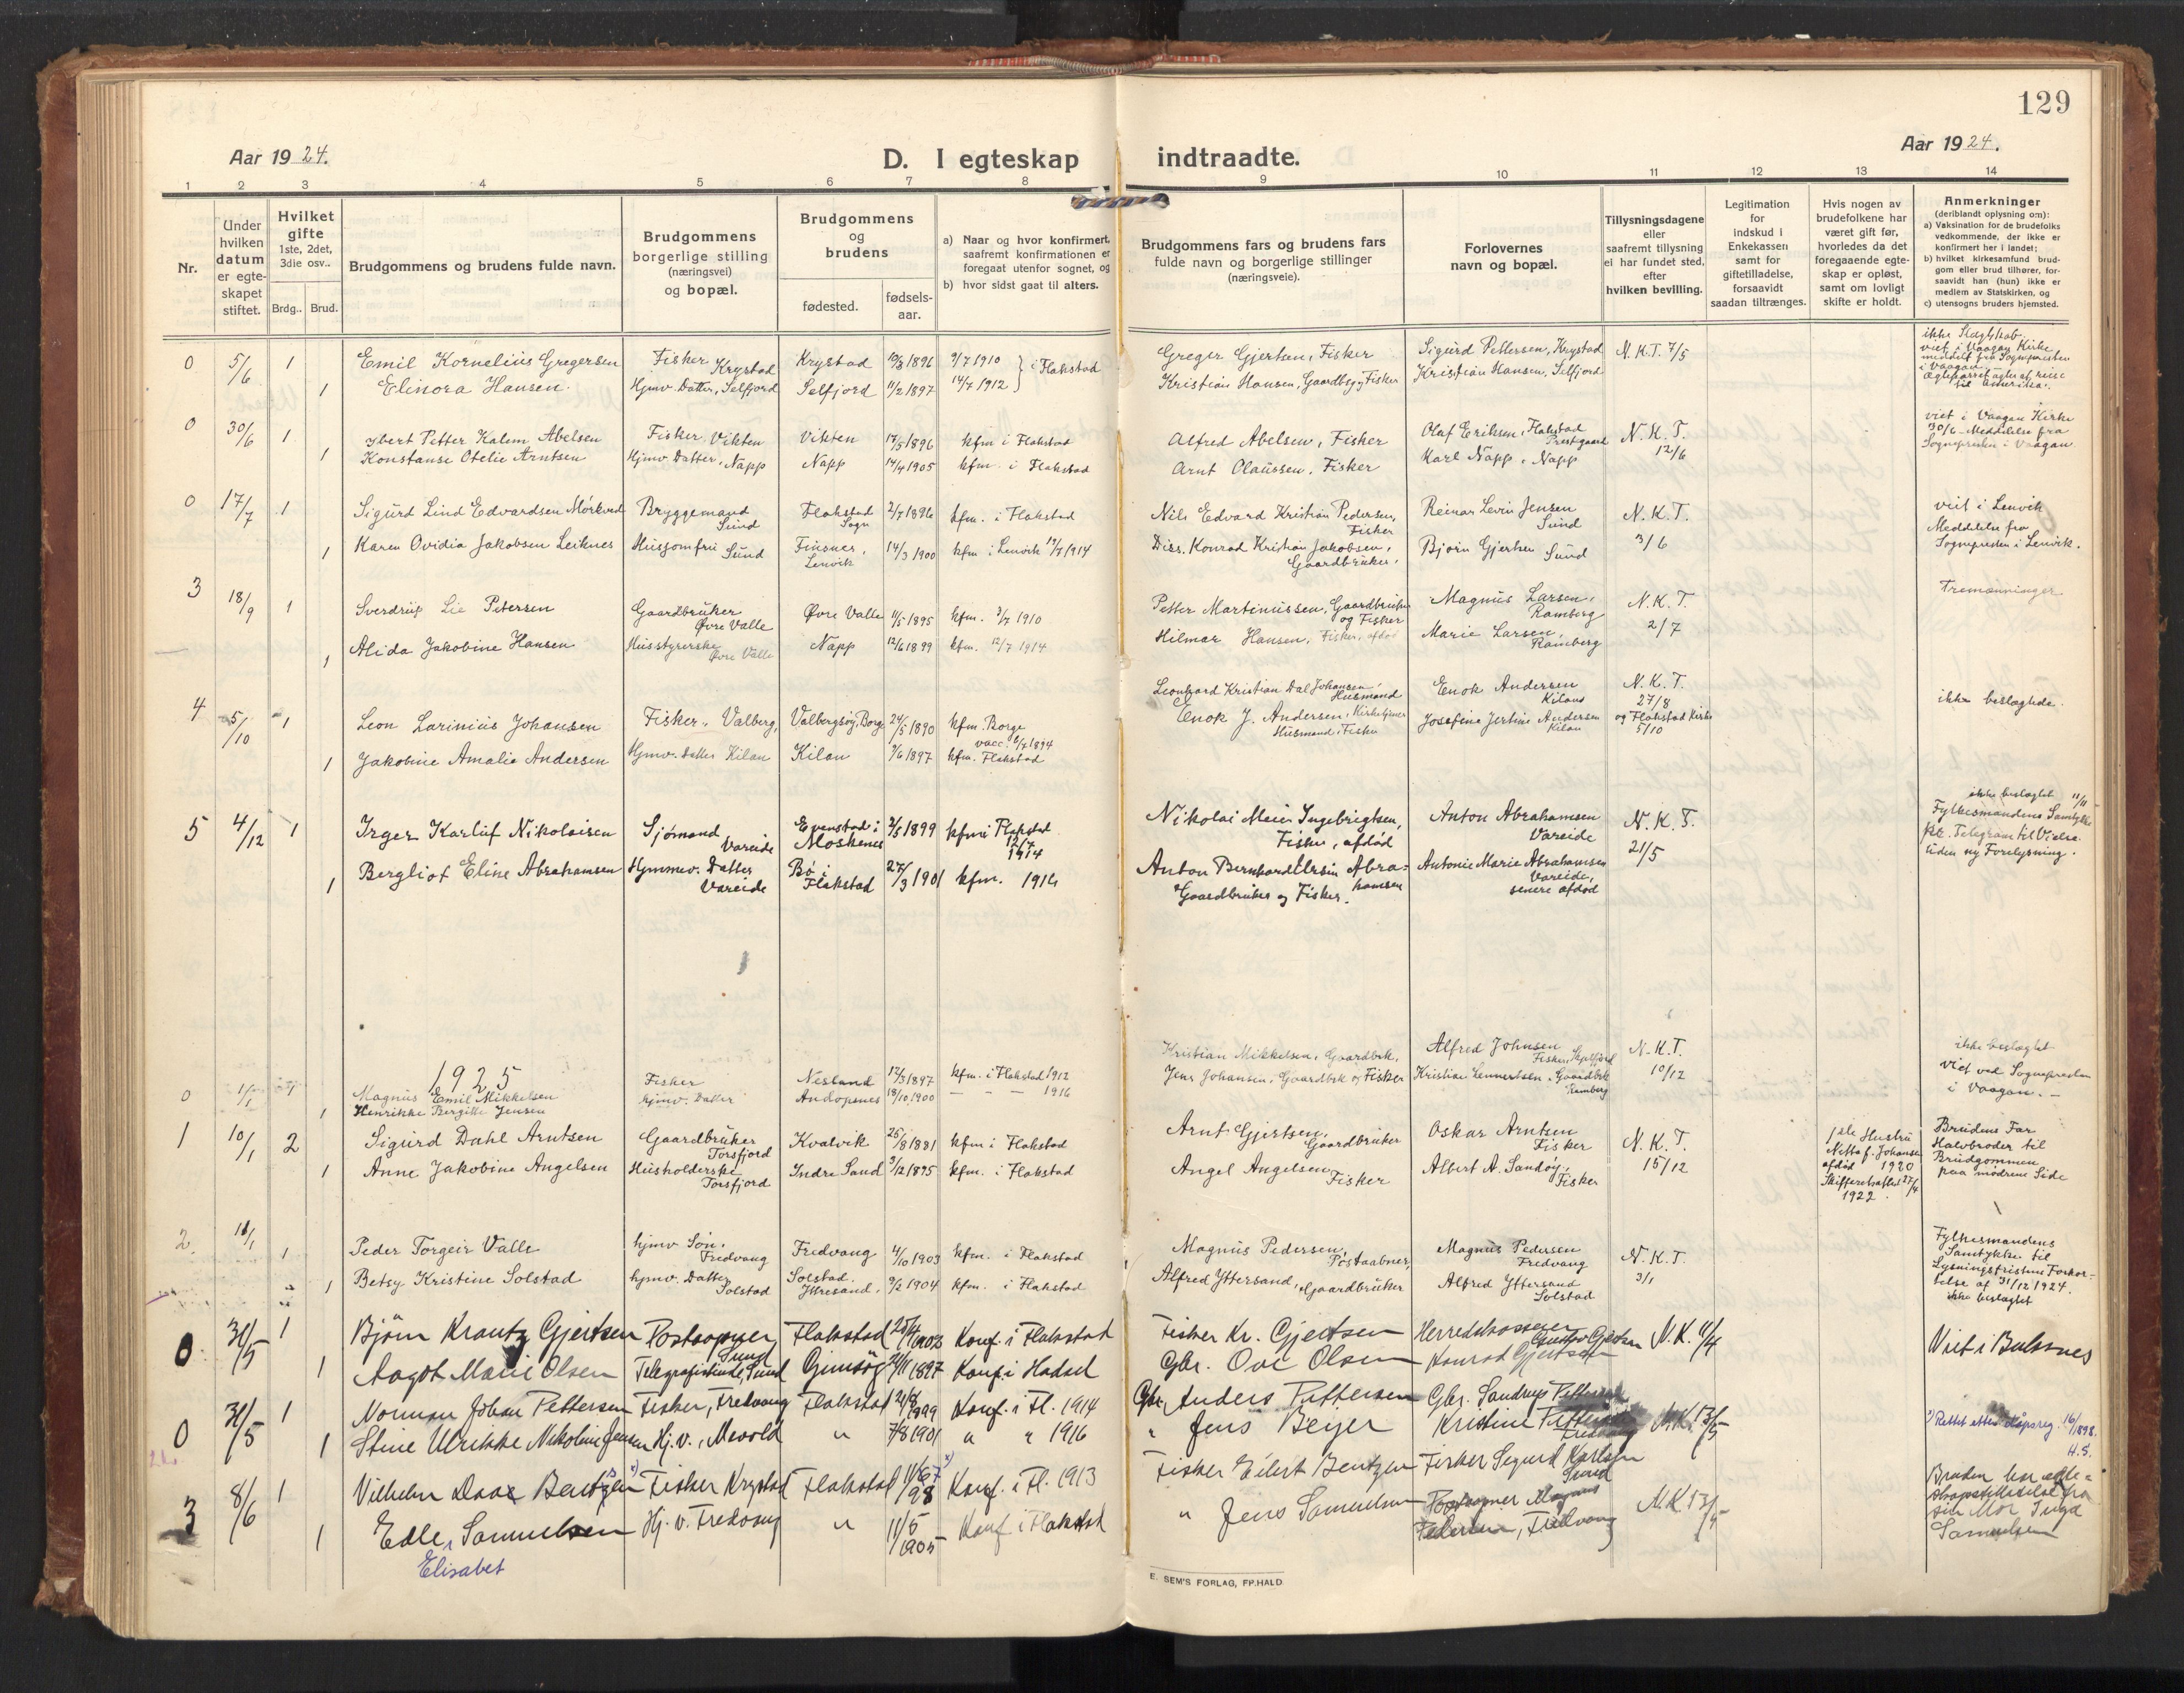 129
Aar 1924.
D. I egteskap
indtraadte.
Aar 1924.
1 2 3 4 5 6 7 8 9 10 11 12 13 14
Nr.
Under hvilken datum er egteskapet stiftet.
Hvilket gifte 1ste, 2det, 3die osv..
Brdg..
Brud.
Brudgommens og brudens fulde navn.
Brudgommens borgerlige stilling (næringsvei) og bopæl.
Brudgommens og brudens
fødested.
fødsels-aar.
a) Naar og hvor konfirmert, saafremt konfirmationen er foregaat utenfor sognet, og
b) hvor sidst gaat til alters.
Brudgommens fars og brudens fars fulde navn og borgerlige stillinger (næringsveie).
Forlovernes navn og bopæl.
Tillysningsdagene eller saafremt tillysning ei har fundet sted, efter hvilken bevilling.
Legitimation for indskud i Enkekassen samt for giftetilladelse, forsaavidt saadan tiltrænges.
Hvis nogen av brudefolkene har været gift før, hvorledes da det foregaaende egteskap er opløst, samt om lovligt skifte er holdt.
Anmerkninger (deriblandt oplysning om):
a) Vaksination for de brudefolks vedkommende, der ikke er konfirmert her i landet;
b) hvilket kirkesamfund brudgom eller brud tilhører, forsaavidt han (hun) ikke er medlem av Statskirken, og
c) utensogns bruders hjemsted.
0 5/6 1 Emil Kornelius Gregersen Fisker Krystad Krystad 10/3 1896 3/7 1910 i Flakstad Greger Gjertsen, Fisker Sigurd Pettersen, Krystad N.K.T. 7/5
1 Elinora Hansen. Hjmv. Datter, Selfjord Selfjord 11/2 1897 14/7 1912 Kristian Hansen, Gaardbr. og Fisker Kristian Hansen, Selfjord
viet i Vaagan Kirke
meddelt fra Sognepresten
i Vaagan.
til Amerika.
0 30/6 1 Petter Kalem Abelsen Fisker, Vikten Vikten 17/5 1896 kfm i Flakstad Alfred Abelsen, Fisker Olaf Eriksen, Flakstad Prestegaard N.K.T. 12/6
1 Konstanse Otelie Arntsen Hjmv. Datter, Napp Napp 14/4 1905 kfm. i Flakstad Arnt Claussen, Fisker Karl Napp, Napp
viet i Vaagan Kirke
30/6 - Meddelelse fra
Sognepresten i Vaagan
0 17/7 1 Sigurd Lind Edvardsen Mørkved Bryggemand Sund Flakstad Sogn 2/7 1896 kfm. i Flakstad Nils Edvard Kristian Pedersen, Fisker Reinar Levin Jensen Sund N.K.T. 3/6
1 Karen Ovidia Jakobsen Leiknes Husjomfru Sund Finsnes, Lenvik 14/3 1900 kfm i Lenvik 19/7 1914 Diss. Konrad Kristian Jakobsen, Gaardbruker, Bjørn Gjertsen Sund
viet i Lenvik
Meddelelse fra
Sognepresten i Lenvik.
3 18/9 1 Sverdrup Lie Petersen Gaardbruker Øvre Valle Øvre Valle 11/5 1895 kfm. 3/7 1910 Petter Martinussen, Gaardbruker og Fisker Magnus Larsen, Ramberg N.K.T. 2/7
1 Alida Jakobine Hansen Husstyrerske Øvre Valle Napp 12/6 1899 kfm. 12/7 1914 Hilmar Hansen, Fisker, afdød Marie Larsen, Ramberg
Tremænninger
4 5/10 1 Leon Larinius Johansen Fisker, Valberg, Valbergsøy, Borg 24/5 1890 kfm. Borge Leonhard Kristian Dal Johansen Husmand Enok Andersen Kilan N.K.T. 27/8
vacc. 6/7 1894
1 Jakobine Amalie Andersen Hjmv. Datter Kilan Kilan 7/6 1897 kfm. Flakstad Enok J. Andersen, Kirketjener Husmand, Fisker Josefine Jertine Andersen Kilan og Flakstad Kirke 5/10
ikke beslægtede.
5 4/12 1 Irger Karluf Nikolaisen Sjømand Vareide Evenstad i Moskenes 2/5 1899 kfm i Flakstad 12/7 1914 Nikolai Meier Ingebrigtsen, Fisker, afdød Anton Abrahamsen Vareide N.K.T. 21/5
1 Bergliot Eline Abrahamsen Hjmmev. Datter Vareide Bø i Flakstad 27/3 1901 kfm. 1916 Anton Bernhard Ursin Abrahamsen Gaardbruker og Fisker. Antonie Marie Abrahamsen Vareide, senere afdød
ikke beslægtet 11/11
Fylkesmandens Samtykke
pr. Telegram til Vielse
uden ny Forelysning.
1925
0 1/1 Magnus Emil Mikkelsen Fisker Nesland 12/3 1897 kfm. i Flakstad 1912 Kristian Mikkelsen, Gaardbrk. Alfred Johnsen Fisker, Skjelfjord N.K.T. 10/12
1 Henrikke Bergitte Jensen hjmv. Datter Andopnes 18/10 1900 — — — 1916 Jens Johansen, Gaardbrk og Fisker Kristine Lennertsen, Gaardbrk Ramberg
ikke beslægtet
viet ved Sognepresten
i Vaagan. —
1 10/1 2 Sigurd Dahl Arntsen Gaardbruker Torsfjord Kvalvik 25/8 1881 kfm i Flakstad Arnt Gjertsen, Gaardbruker Oskar Arntsen Fisker N.K.T. 15/12
1 Anne Jakobine Angelsen Husholderske Torsfjord Indre Sand 3/12 1895 kfm. i Flakstad Angel Angelsen Fisker Albert A. Sandøy, Fisker
1ste Hustru
Netta f. Johansen
afdød 1920
Skifteretsattest 27/4
1922.
Brudens Far
Halvbroder til
Brudgommen
paa mødrene Side
2. 11/1 1 Peder Torgeir Valle hjmv Søn, Fredvang Fredvang 4/10 1903 kfm. i Flakstad Magnus Pedersen, Postaabner, Magnus Pedersen Fredvang N.K.T. 3/1
1 Betsy Kristine Solstad hjmv. Datter Solstad Solstad, Yttresand, 9/2 1904 kfm. i Flakstad Alfred Yttersand, Gaardbruker Alfred Yttersand Solstad
Fylkesmandens
Samtykke til
Lysningsfristens Forkor-
telse af 31/12 1924.
ikke beslægtet
0 31/5 1 Bjørn Krantz Gjertsen Postaapner, Sund Flakstad 25/4 1903 Konf. i Flakstad Fisker Kr. Gjertsen Herredskasserer Gustav Gjertsen N.K. 11/4
1 Aagot Marie Olsen Telegrafistinde, Sund Gimsøy 24/11 1897 Konf. i Hadsel Gbr. Ove Olsen Konrad Gjertsen
Viet i Buksnes
0 31/5 1 Norman Johan Pettersen Fisker, Fredvang Flakstad 21/8 1899 Konf. i Fl. 1914 Gbr. Anders Pettersen Gbr. Sandrup Pettersen
1 Stine Ulrikke Nikoline Jensen Hj. v., Mevold " 7/8 1901 " " 1916 " Jens Beyer Kristine Pettersen Fredvang N.K. 13/5
*) Rettet etter dåpsreg. 16/1898.
H.S.
3 8/6 1 Vilhelm Daae Bentzen Fisker Krystad Flakstad 11/6 98 Konf. i Fl. 1913 Fisker Eilert Bentzen Fisker Sigurd Karlsen Sund
1 Edle Samuelsen Hj. v. Fredvang " 11/5 1905 Konf i Flakstad " Jens Samuelsen Postaapner Magnus Pedersen, Fredvang N.K. 13/5
Elisabet
Bruden har
fra
sin Mor Inga
Samuelsen
E. SEM'S FORLAG, FR.HALD